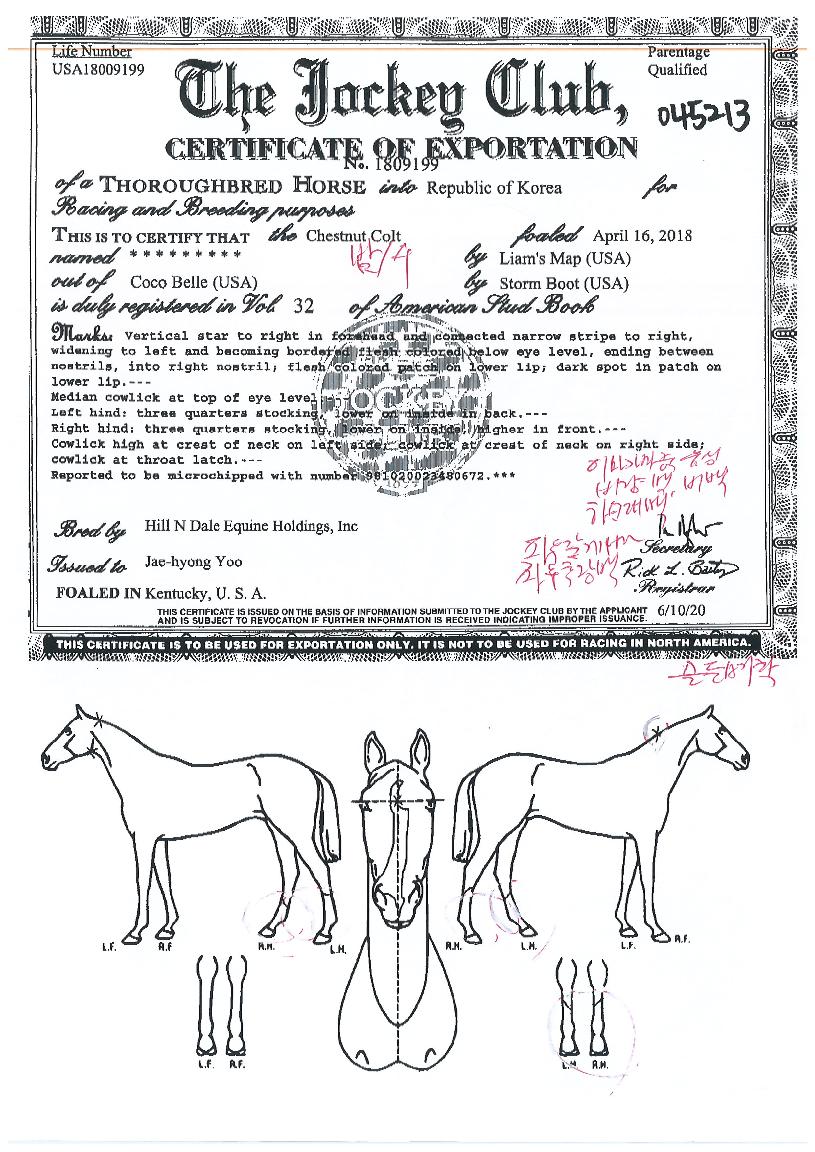 Life Number
USA18009199
Parentage
Qualified
The Jockey Club,
045213
CERTIFICATE OF EXPORTATION
No. 1809199
of a THOROUGHBRED HORSE into Republic of Korea for
Racing and Breeding purposes
THIS IS TO CERTIFY THAT the Chestnut Colt foaled April 16, 2018
밤/수
named * * * * * * * * * by Liam's Map (USA)
out of Coco Belle (USA) by Storm Boot (USA)
is duly registered in Vol. 32 of American Stud Book
Marks: Vertical star to right in forehead and connected narrow stripe to right,
widening to left and becoming bordered flesh colored below eye level, ending between
nostrils, into right nostril; flesh colored patch on lower lip; dark spot in patch on
lower lip.---
Median cowlick at top of eye level.---
Left hind: three quarters stocking, lower on inside in back.---
Right hind: three quarters stocking, lower on inside, higher in front.---
Cowlick high at crest of neck on left side; cowlick at crest of neck on right side;
cowlick at throat latch.---
Reported to be microchipped with number 981020023480672.***
JOCKEY
1894
Bred by Hill N Dale Equine Holdings, Inc
Secretary
Issued to Jae-hyong Yoo
Registrar
FOALED IN Kentucky, U. S. A.
THIS CERTIFICATE IS ISSUED ON THE BASIS OF INFORMATION SUBMITTED TO THE JOCKEY CLUB BY THE APPLICANT 6/10/20
AND IS SUBJECT TO REVOCATION IF FURTHER INFORMATION IS RECEIVED INDICATING IMPROPER ISSUANCE.
THIS CERTIFICATE IS TO BE USED FOR EXPORTATION ONLY. IT IS NOT TO BE USED FOR RACING IN NORTH AMERICA.
L.F. R.F. R.H. L.H. R.H. L.H. L.F. R.F.
L.F. R.F. L.H. R.H.